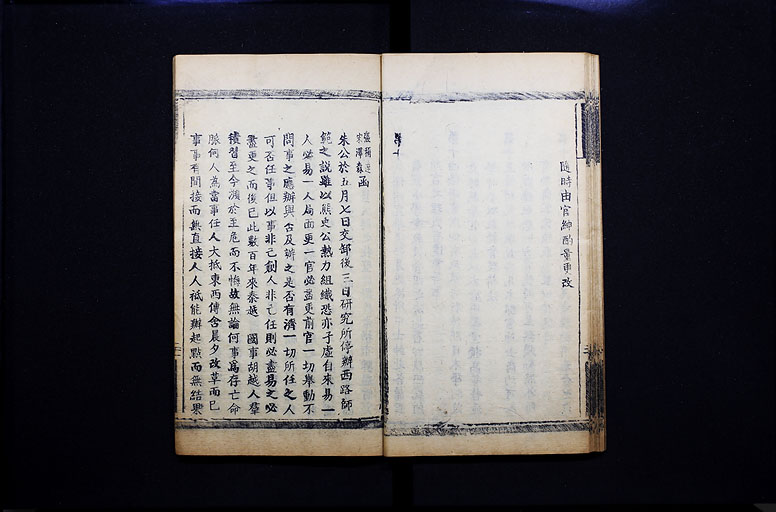 隨時由官紳酌量更改
宋澤森函
朱公於五月七日交卸後三日研究所停辦西路師
範之說雖以熊史公熱力組織恐亦子虛自來易一
人必易一人局面更一官必盡更前官一切舉動不
問事之應辦與否及辦之是否有濟一切所任之人
可否任事但以事非己創人非己任則必盡易之必
盡更之而後已此數百年來秦越國事胡越人羣
積習至今瀕於至危而不悔故無論何事為存亡命
脈何人為當事任人大抵東西傳舍晨夕改革而已
事事有間接而無直接人人祇能辦起點而無結果